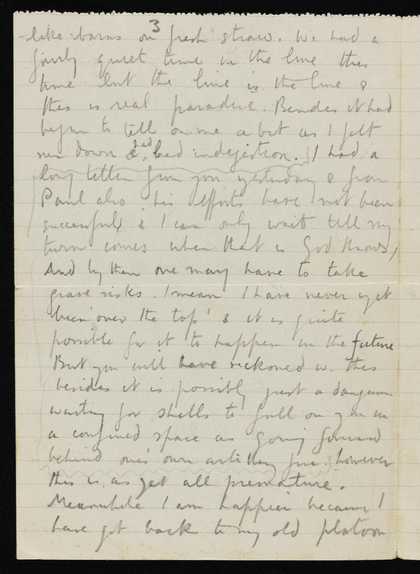 3
like barns on fresh straw. We had a
fairly quiet time in the line this
time but the line is the line &
this is real paradise. Besides it had
begun to tell on me a bit as I felt
run down & had bad indigestion. I had a
long letter from you yesterday & from
Paul also, his efforts have not been
successful & I can only wait till my
turn comes when that is God knows,
And by then one may have to take
grave risks. I mean I have never yet
been 'over the top' & it is quite
possible for it to happen in the future
But you will have reckoned w. this
besides it is possibly just as dangerous
waiting for shells to fall on you in
a confined space as going forward
behind one's own artillery fire; however
this is as yet all premature.
Meanwhile I am happier because I
have got back to my old platoon